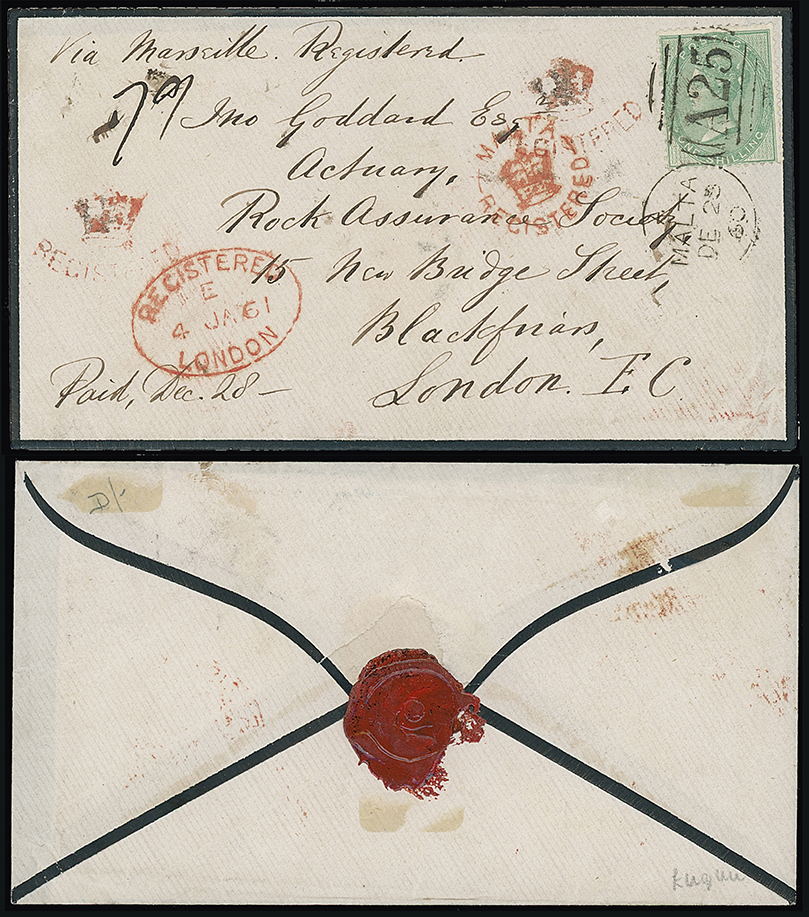 Via Marseille. Registered.
79
Jno Goddard Esqr
Actuary,
Rock Assurance Society
15 New Bridge Street,
Blackfriars,
London. E.C.
Paid, Dec. 28 —
A25
ONE SHILLING
MALTA
DE 28
60
MALTA
REGISTERED
REGISTERED
REGISTERED
REGISTERED
E
4 JA 61
LONDON
D/-